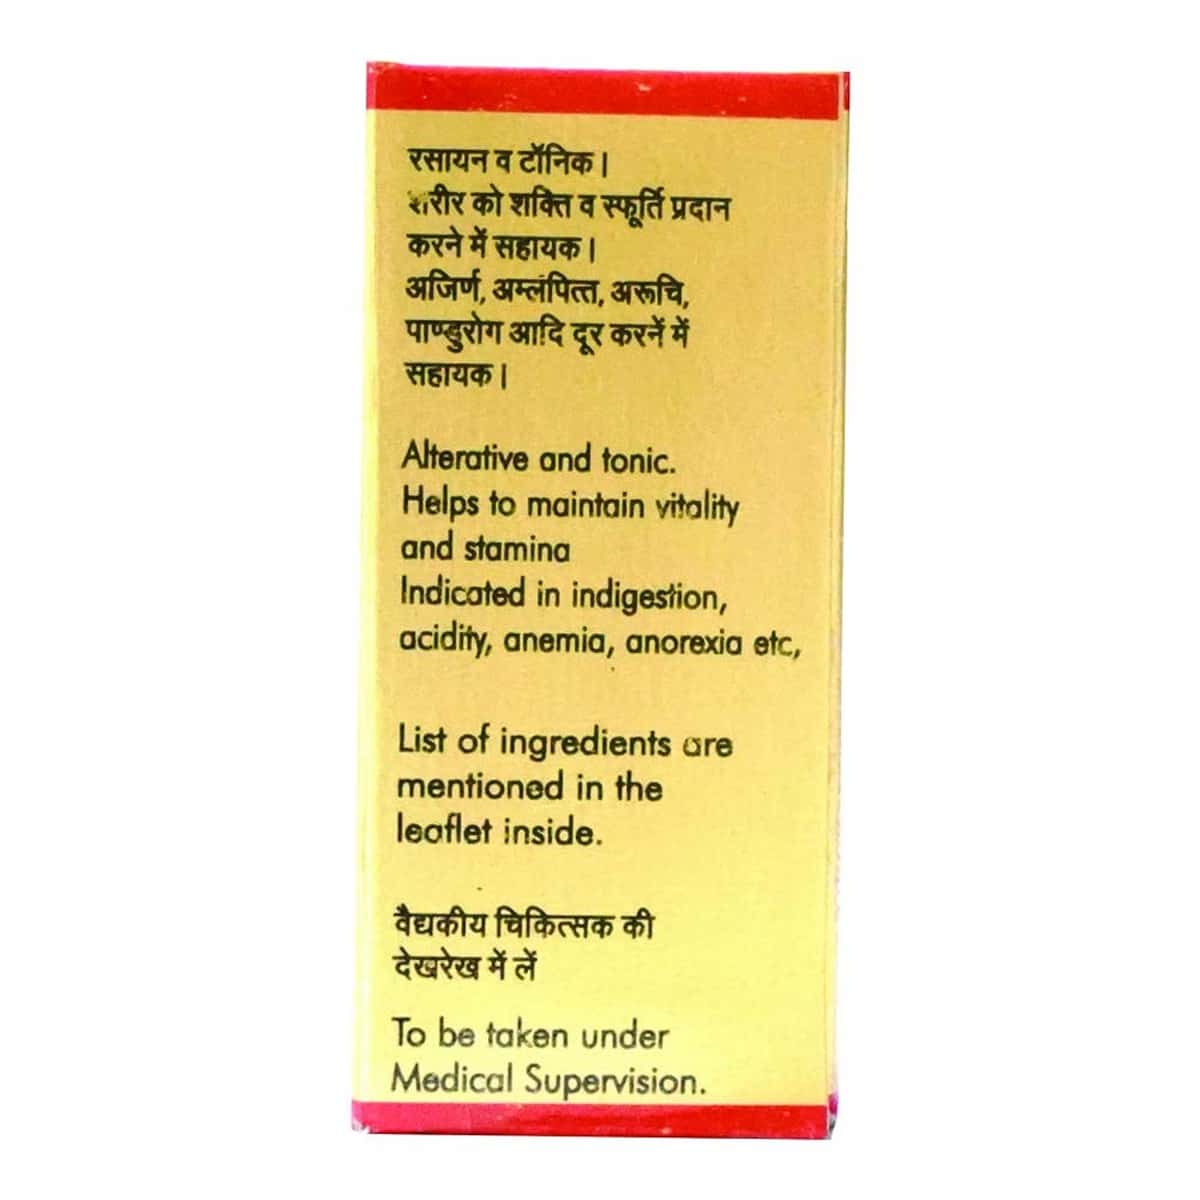 रसायन व टॉनिक।
शरीर को शक्ति व स्फूर्ति प्रदान
करने में सहायक।
अजिर्ण, अम्लंपित्त, अरूचि,
पाण्डुरोग आदि दूर करनें में
सहायक।
Alterative and tonic.
Helps to maintain vitality
and stamina
Indicated in indigestion,
acidity, anemia, anorexia etc,
List of ingredients are
mentioned in the
leaflet inside.
वैद्यकीय चिकित्सक की
देखरेख में लें
To be taken under
Medical Supervision.